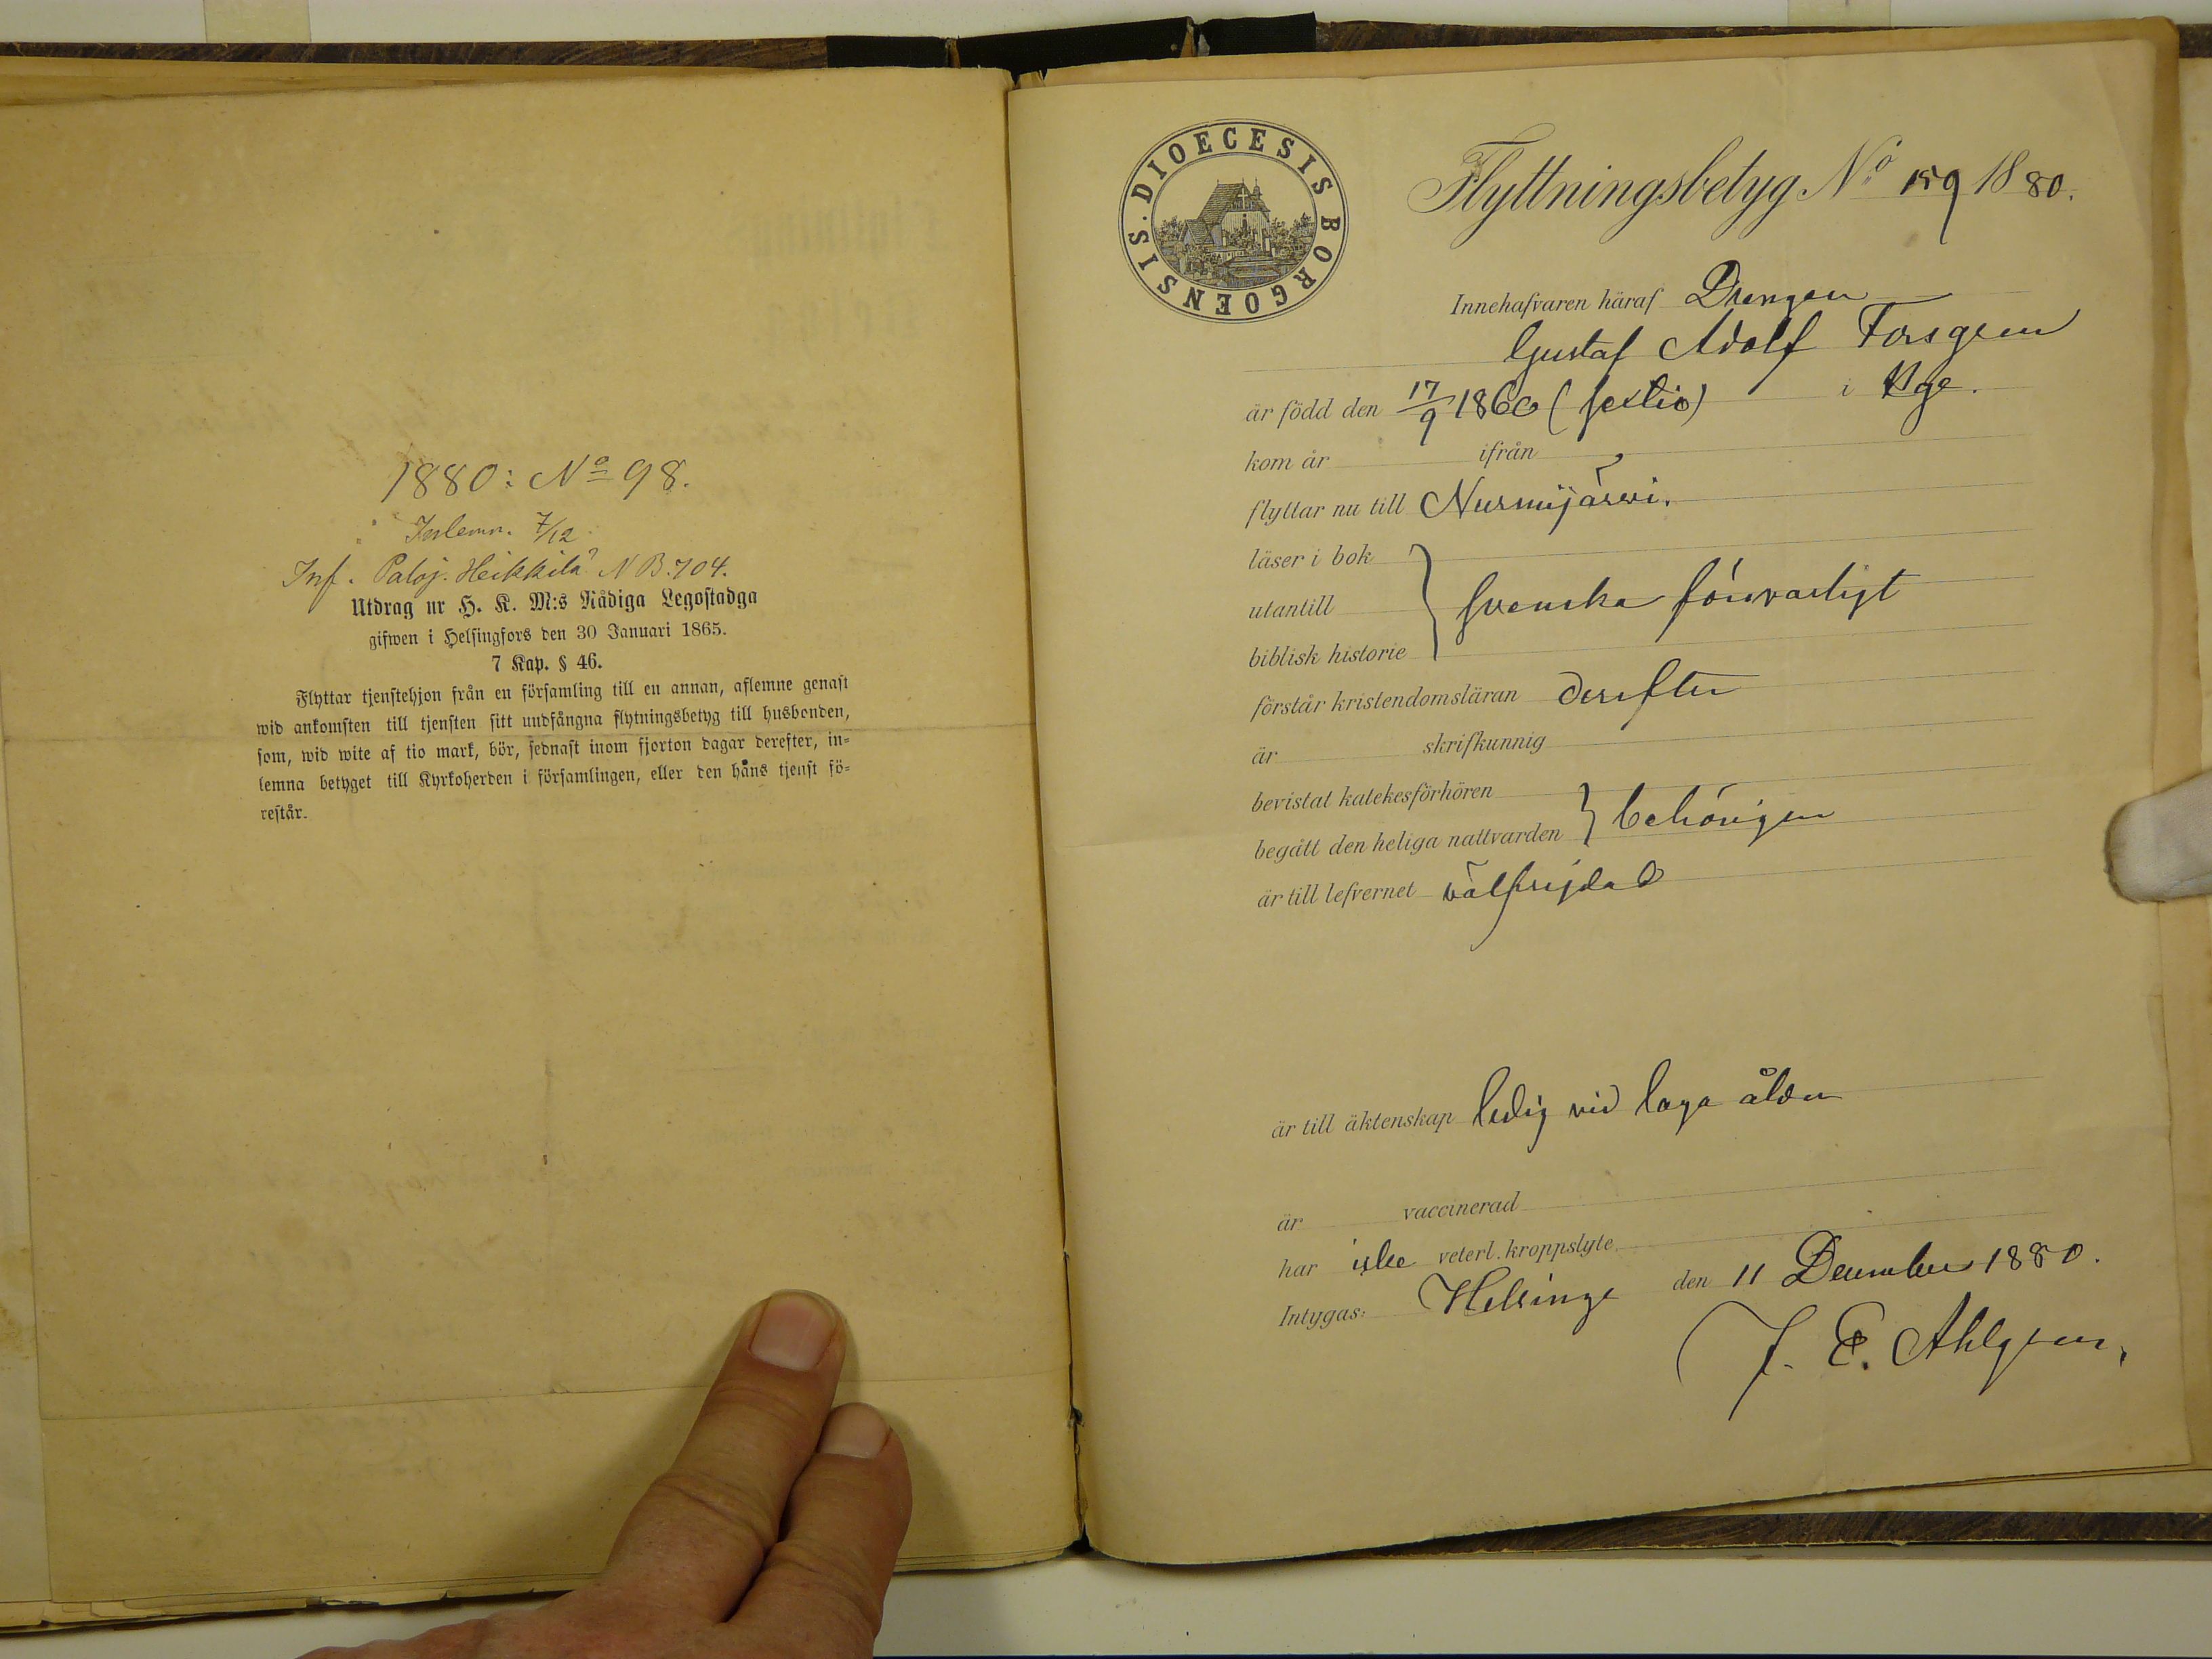 1880: No 98.
Inlemn. 7/12
Inf. Paloj. Heikkilä N B. 704.
Utdrag ur H. K. M:s Nådiga Legostadga
gifwen i Helsingfors den 30 Januari 1865.
7 Kap. § 46.
Flyttar tjenstehjon från en församling till en annan, aflemne genast
wid ankomsten till tjensten sitt undfångna flytningsbetyg till husbonden,
som, wid wite af tio mark, bör, sednast inom fjorton dagar derefter, in-
lemna betyget till Kyrkoherden i församlingen, eller den håns tjenst fö-
restår.
DIOECESIS BORGOENSIS.
Flyttningsbetyg No 159 1880.
Innehafvaren häraf Drengen
Gustaf Adolf Forsgren
är född den 17/9 1860 (sextio) i
kom år ifrån
flyttar nu till Nurmijärvi.
läser i bok
utantill svenska försvarligt
biblisk historie
förstår kristendomsläran derefter
är skrifkunnig
bevistat katekesförhören
begått den heliga nattvarden behörigen
är till lefvernet välfrejdad
är till äktenskap ledig vid laga ålder
är vaccinerad
har icke veterl. kroppslyte.
Intygas: Helsinge den 11 December 1880.
J. E. Ahlgren.